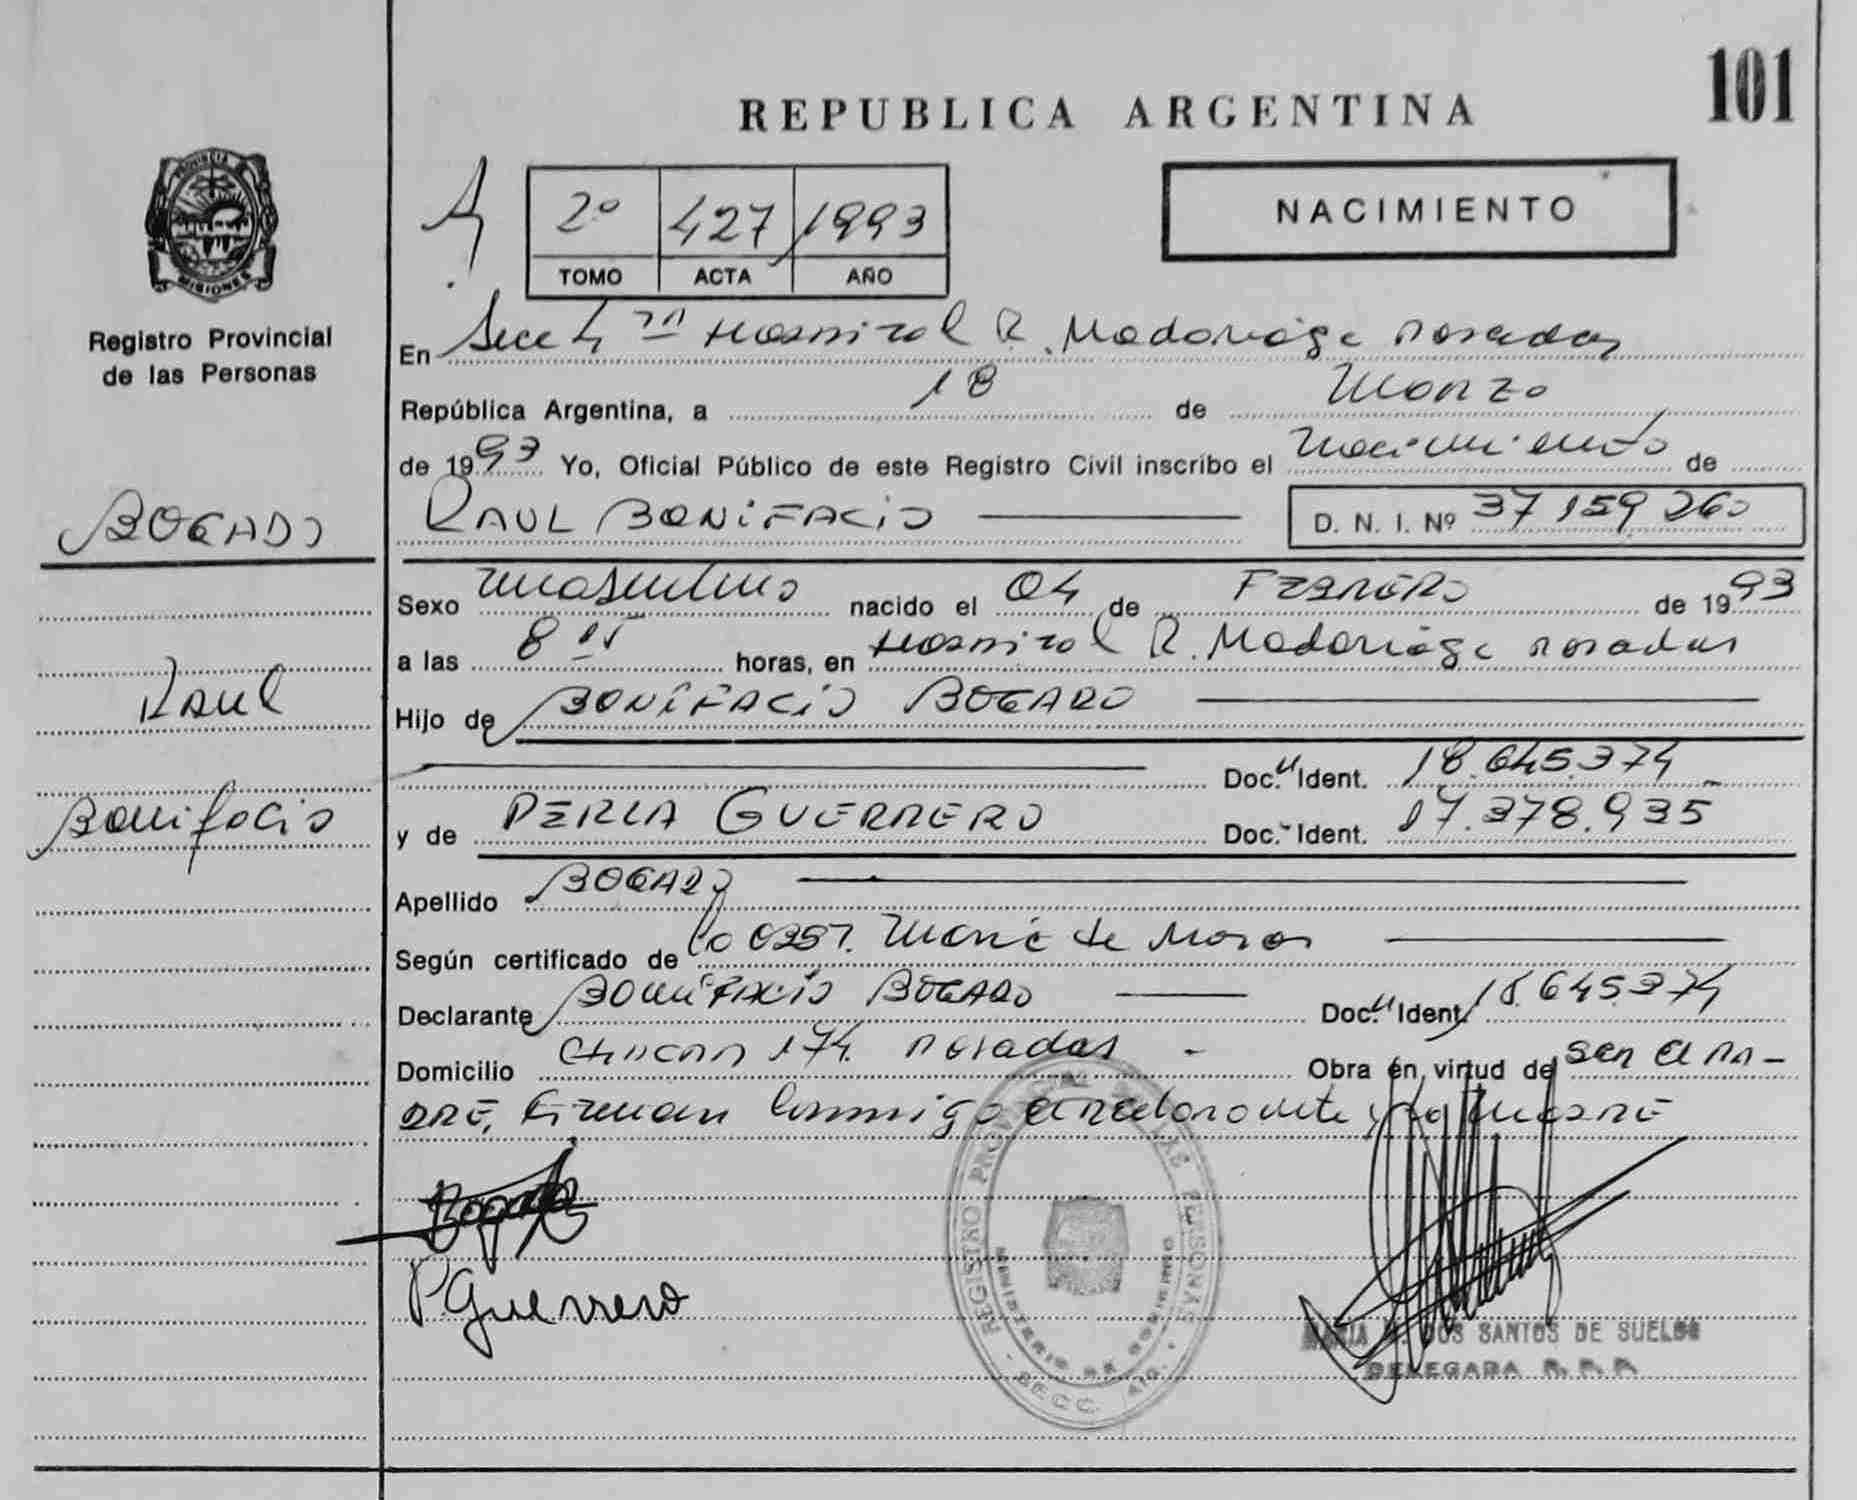 101
REPUBLICA ARGENTINA
NACIMIENTO
2º 427 1993
TOMO ACTA AÑO
PROVINCIA DE MISIONES
Registro Provincial
de las Personas
En Secc 4ta Hospital R. Madariaga Posadas
República Argentina, a 18 de Marzo
de 1993 Yo, Oficial Público de este Registro Civil inscribo el Nacimiento de
BOGADO
RAUL BONIFACIO D. N. I. Nº 37 159 260
Sexo Masculino nacido el 04 de FEBRERO de 1993
a las 8 horas, en Hospital R. Madariaga Posadas
Raul
Hijo de BONIFACIO BOGADO
Doc. Ident. 18.645.374
Bonifacio
y de PERLA GUERRERO Doc. Ident. 17.378.935
Apellido BOGADO
Según certificado de la Obst. Maria de
Declarante BONIFACIO BOGADO Doc. Ident. 18.645.374
Domicilio 174 Posadas - Obra en virtud de ser el pa-
dre, Firman conmigo el declarante y la Madre
Bogado
P. Guerrero
REGISTRO PROVINCIAL DE LAS PERSONAS
MINISTERIO DE GOBIERNO
SECC. 4ta.
MARIA DOS SANTOS DE SUELOS
DELEGADA R. P. P.